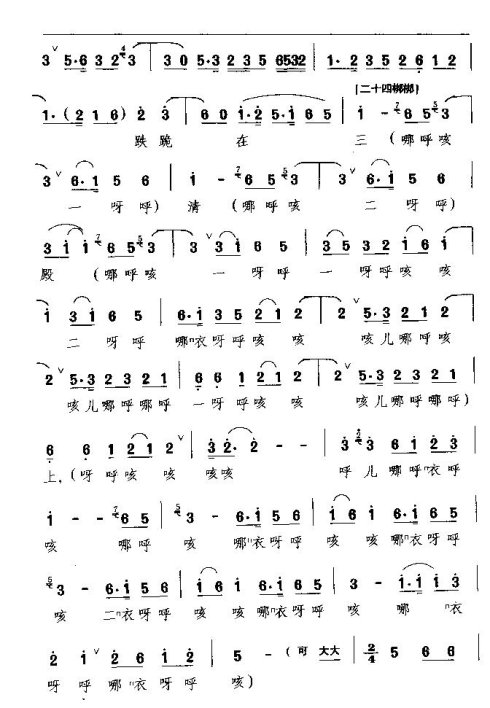 3 ∨ 5·6 3 2 4 3 | 3 0 5·3 2 3 5 6532 | 1· 2 3 5 2 6 1 2
[二十四梆梆]
1·( 2 1 6 ) 2 3 | 6 0 1·2 5·1 6 5 | 1 - 7 6 5 5 3
跌跪 在 三 (哪呼咳
3 ∨ 6·1 5 6 | 1 - 6 5 5 3 | 3 ∨ 6·1 2 2
一呀呼) 清 (哪呼咳 二呀呼)
3 1 1 6 5 5 3 | 3 ∨ 3 1 6 5 | 3 5 3 2 1 6 1
殿 (哪呼咳 一呀呼 一呀呼咳咳
1 3 1 6 5 | 6·1 3 5 2 2 1 2 | 2 ∨ 5·3 2 1 2
二呀呼 哪衣呀呼咳咳 咳儿哪呼咳
2 ∨ 5·3 2 3 2 1 | 6 6 1 2 1 2 | 2 ∨ 5·3 2 3 2 1
咳儿哪呼哪呼 一呀呼咳咳 咳儿哪呼哪呼)
6 6 1 2 1 2 ∨ | 3 2· 2 - - | 3 3 6 1 2 3
上, (呀呼咳咳 咳咳 呼儿哪呼衣呼
1 - - 6 5 | 3 - 6·1 6·1 6 5 | 1 6 1 6·1 6 5
咳 哪呼 咳 哪衣呀呼 咳 咳哪衣呀呼
3 - 6·1 6·1 6 5 | 1 6 1 6·1 6 5 | 3 - 1·1 1 3
咳 二衣呀呼 咳 咳哪衣呀呼 咳 哪 衣
2 1 ∨ 2 6 1 2 | 5 - (可 大大 | 2/4 5 6 6
呀呼哪衣呀呼 咳)